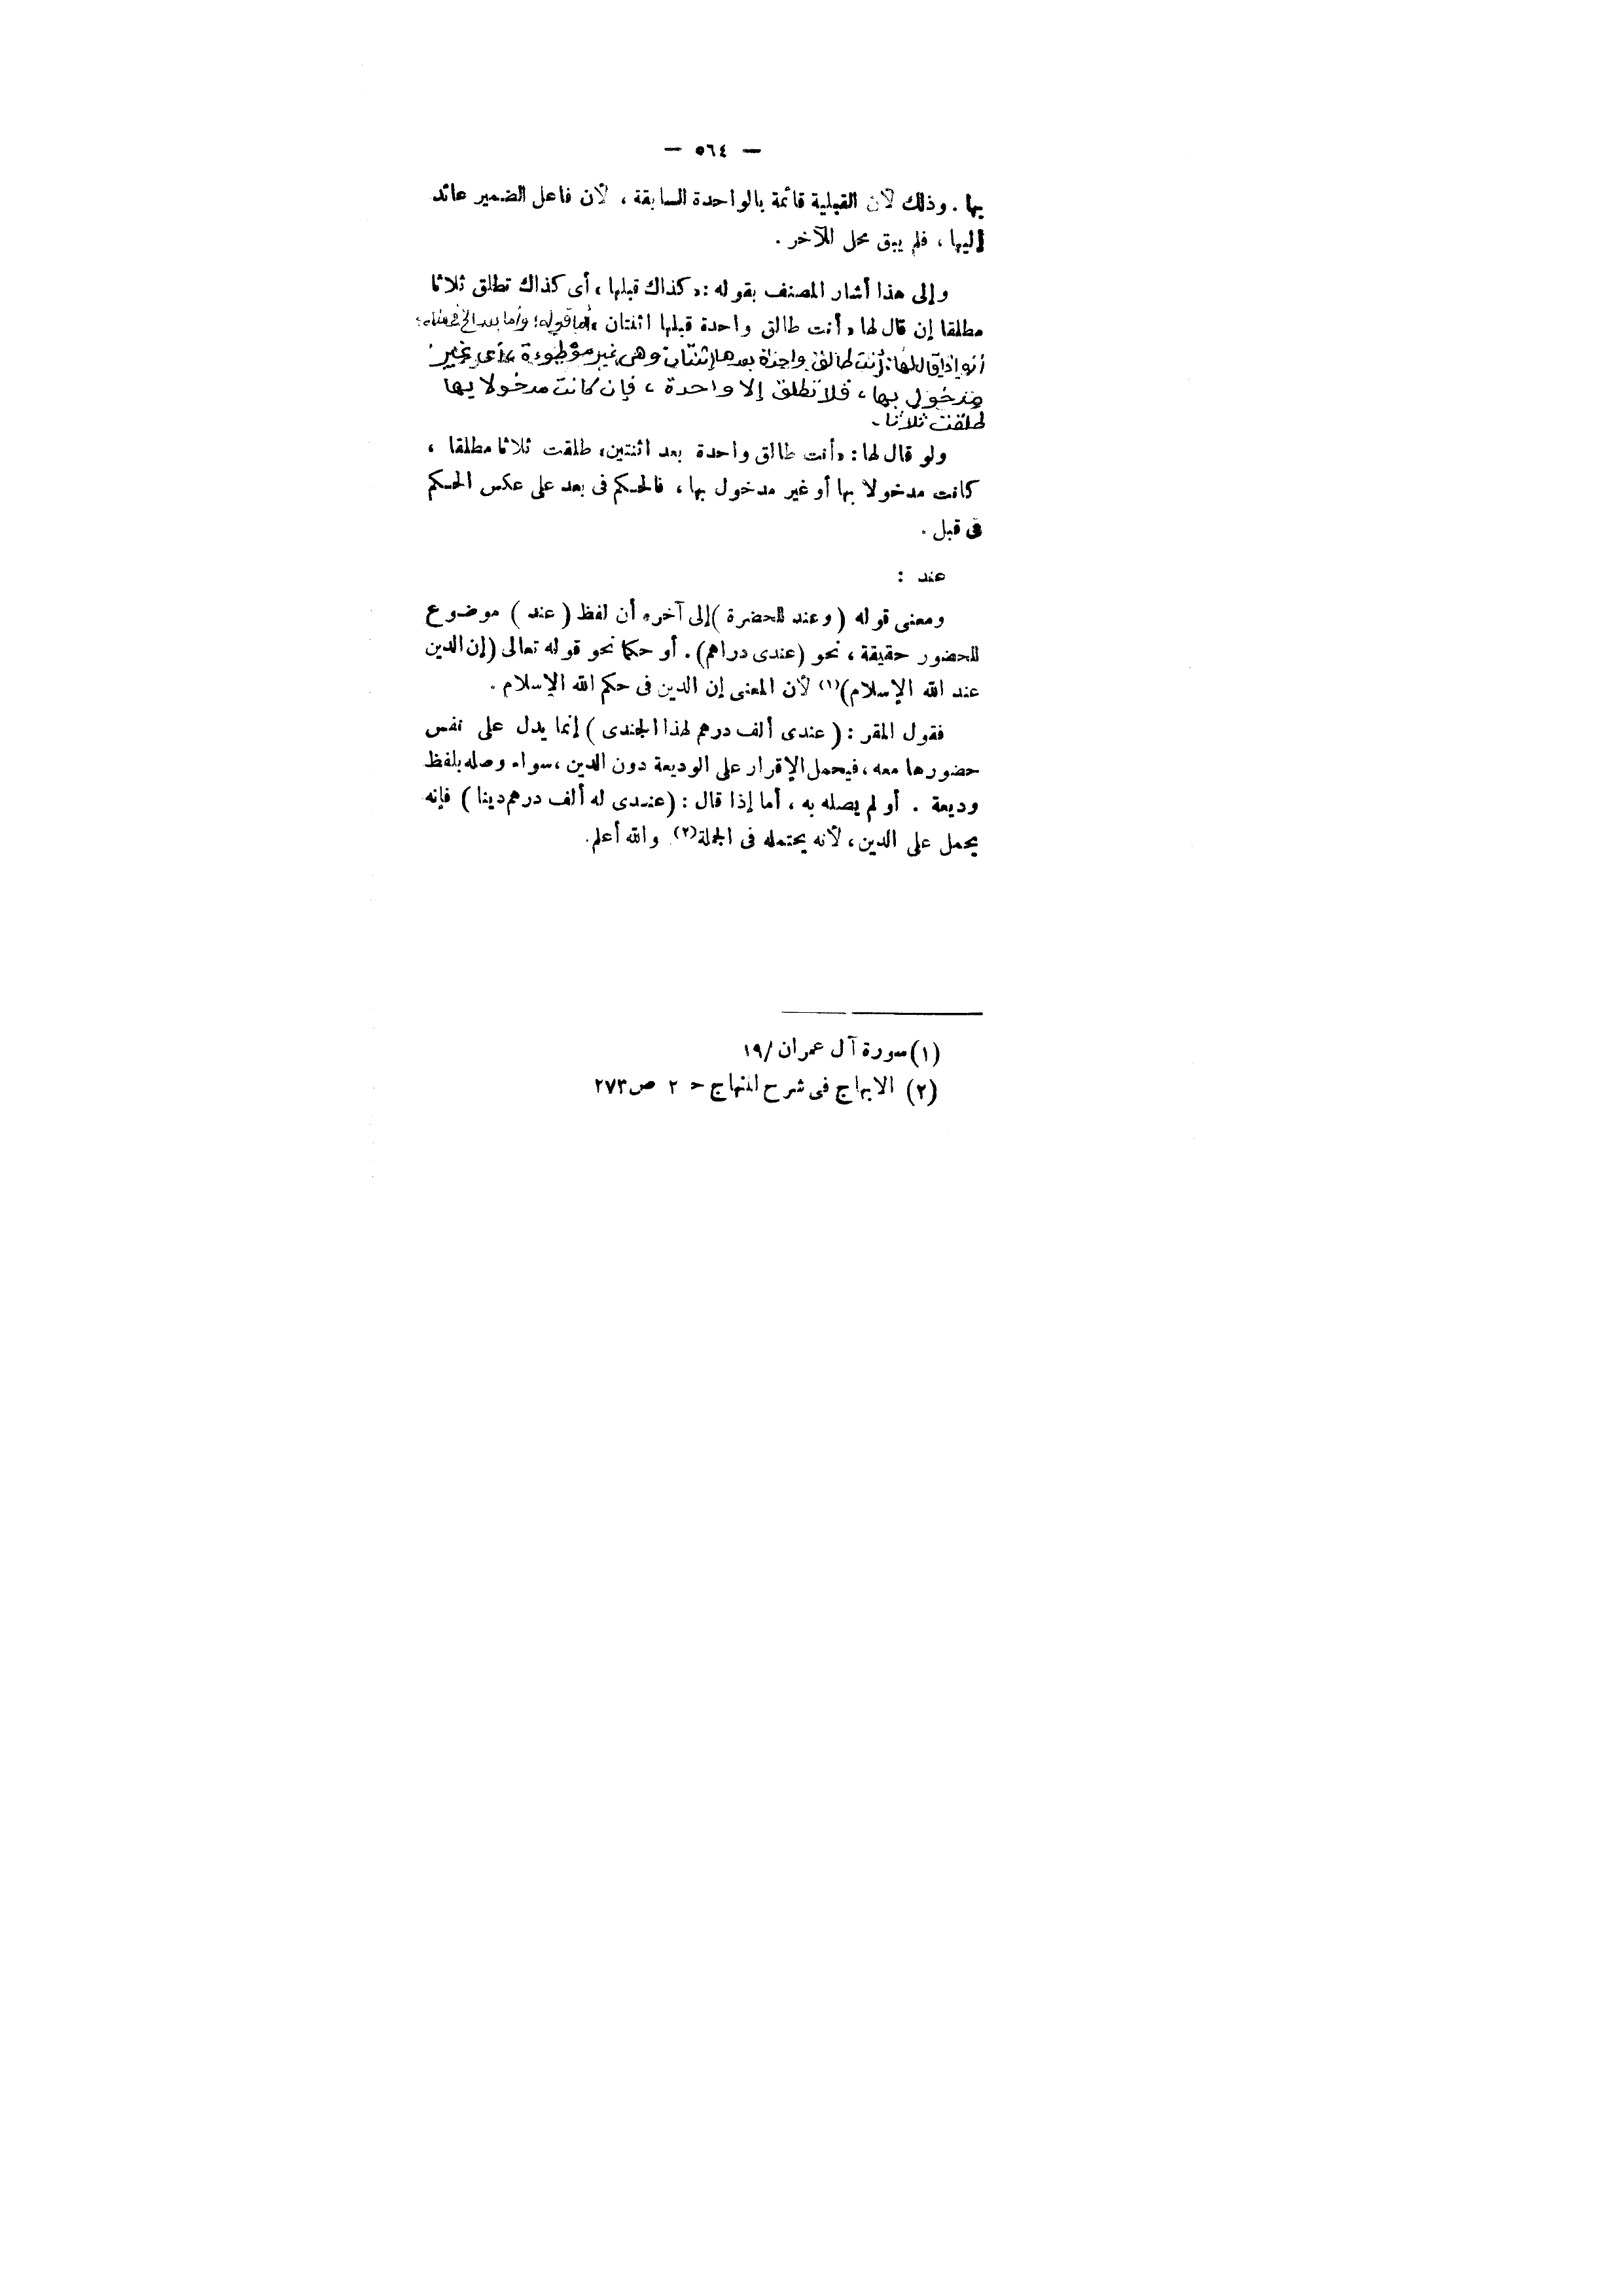 — ٥٦٤ —
بها . وذلك لأن القبلية قائمة بالواحدة السابقة ، لأن فاعل الضمير عائد
إليها ، فلم يبق محل للآخر .
وإلى هذا أشار المصنف بقوله : « كذاك قبلها ، أى كذاك تطلق ثلاثا
مطلقا إن قال لها « أنت طالق واحدة قبلها اثنتان ، أما قوله : وأما بعد الخ فمعناه :
أنه إذا قال لها : أنت طالق واحدة بعدها إثنتان وهى غير موطوءة ، أى غير
مدخول بها ، فلا تطلق إلا واحدة ، فإن كانت مدخولا بها
طلقت ثلاثا .
ولو قال لها : « أنت طالق واحدة بعد اثنتين ، طلقت ثلاثا مطلقا ،
كانت مدخولا بها أو غير مدخول بها ، فالحكم فى بعد على عكس الحكم
فى قبل .
عند :
ومعنى قوله ( وعند للحضرة ) إلى آخره أن لفظ ( عند ) موضوع
للحضور حقيقة ، نحو (عندى دراهم) . أو حكما نحو قوله تعالى (إن الدين
عند الله الإسلام)(١) لأن المعنى إن الدين فى حكم الله الإسلام .
فقول المقر : ( عندى ألف درهم لهذا الجندى ) إنما يدل على نفس
حضورها معه ، فيحمل الإقرار على الوديعة دون الدين ، سواء وصله بلفظ
وديعة . أو لم يصله به ، أما إذا قال : (عندى له ألف درهم دينا ) فإنه
يحمل على الدين ، لأنه يحتمله فى الجملة(٢) والله أعلم .
(١) سورة آل عمران /١٩
(٢) الابهاج فى شرح المنهاج ح ٢ ص ٢٧٣